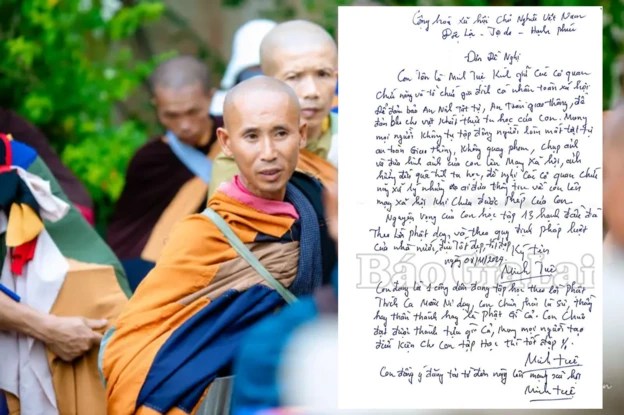 Cộng hòa xã hội Chủ Nghĩa Việt Nam
Độc Lập - Tự do - Hạnh phúc
Đơn Đề Nghị
Con Tên là Minh Tuệ Kính gửi Các Cơ quan
chức năng và tổ chức gia đình cá nhân toàn xã hội
để đảm bảo An Ninh trật tự, An Toàn giao thông, để
đảm bảo cho việc tu học của Con. Mong
mọi người Không tụ tập đông người làm mất trật tự
an toàn Giao thông, Không quay phim, chụp ảnh
và đưa hình ảnh của con lên Mạng Xã hội, ảnh
hưởng đến quá trình tu học, đề nghị Các Cơ quan chức
năng xử lý những đưa thông tin về con lên
mạng xã hội Khi Chưa được phép của Con.
Nguyện Vọng của Con học tập 13 hạnh đầu đà
Theo Lời phật dạy, và theo quy định pháp luật
của nhà nước, Ký Tên
ngày
Minh Tuệ
Con đang là 1 công dân đang tập học theo lời Phật
Thích Ca Mâu Ni dạy, Con Chưa phải là sư, thầy
hay thần thánh hay là phật gì Cả. Con Chưa
đạt được thành tựu gì Cả, mong mọi người tạo
điều Kiện Cho Con tập học thì tốt đẹp
Minh Tuệ
Con đồng ý đăng tải tờ đơn này lên mạng xã hội
Minh Tuệ